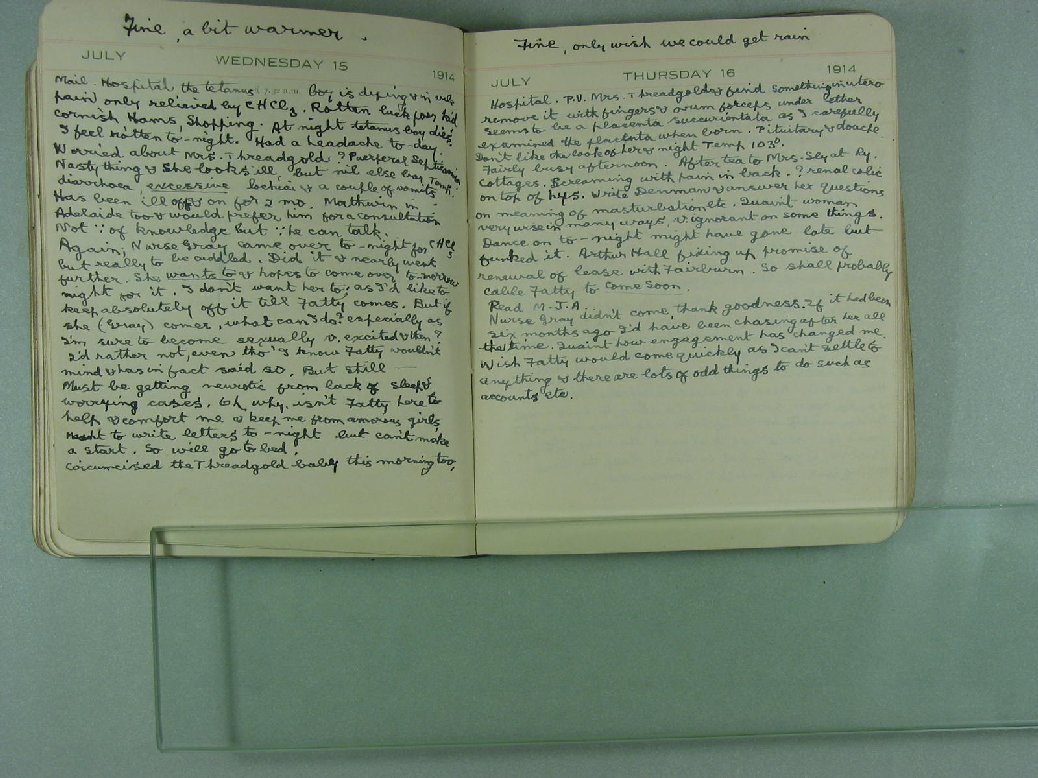 Fine, a bit warmer.
JULY WEDNESDAY 15 1914
Mail Hospital the tetanus Boy is dying & in
pain only relieved by CHCl3. Rotten luck poor kid
Cornish Hams, Shopping. At night tetanus boy dies.
I feel rotten to-night. Had a headache to-day.
Worried about Mrs. Threadgold ? Puerperal Septicaemia
Nasty thing & she looks ill but nil else bar Temp.
diarrhoea, excessive lochia & a couple of vomits
Has been ill off & on for 2 mo. Mathwin in
Adelaide too & would prefer him for a consultation
Not ∵ of knowledge but ∵ he can talk.
Again, Nurse Gray came over to-night for CHCl3
but really to be cuddled. Did it & nearly went
further. She wants to & hopes to come over to-morrow
night for it. I don't want her to, as I'd like to
keep absolutely off it till Fatty comes. But if
she (Gray) comes, what can I do? especially as
I'm sure to become sexually v. excited & then?
I'd rather not, even tho' I know Fatty wouldn't
mind & has in fact said so. But still —
Must be getting neurotic from lack of sleep &
worrying cases. Oh, why isn't Fatty here to
help & comfort me & keep me from amorous girls.
Meant to write letters to-night but can't make
a start. So will go to bed.
Circumcised the Threadgold baby this morning too,
Fine, only wish we could get rain
JULY THURSDAY 16 1914
Hospital. P.V. Mrs. Threadgold & find something in utero
remove it with fingers & ovum forceps under ether
Seems to be a placenta succenturiata as I carefully
examined the placenta when born. Pituitary & douche.
Don't like the look of her & night Temp 103°.
Fairly busy afternoon. After tea to Mrs. Sly at Ry.
Cottages. Screaming with pain in back. ? renal colic
on top of hys. Write Denman & answer her questions
on meaning of masturbation etc. Quaint woman
very wise in many ways, v. ignorant on some things.
Dance on to-night might have gone late but
funked it. Arthur Hall fixing up promise of
renewal of lease with Fairburn. So shall probably
cable Fatty to come soon.
Read M.J.A.
Nurse Gray didn't come, thank goodness. If it had been
six months ago I'd have been chasing after her all
the time. Quaint how engagement has changed me.
Wish Fatty would come quickly as I can't settle to
anything & there are lots of odd things to do such as
accounts etc.